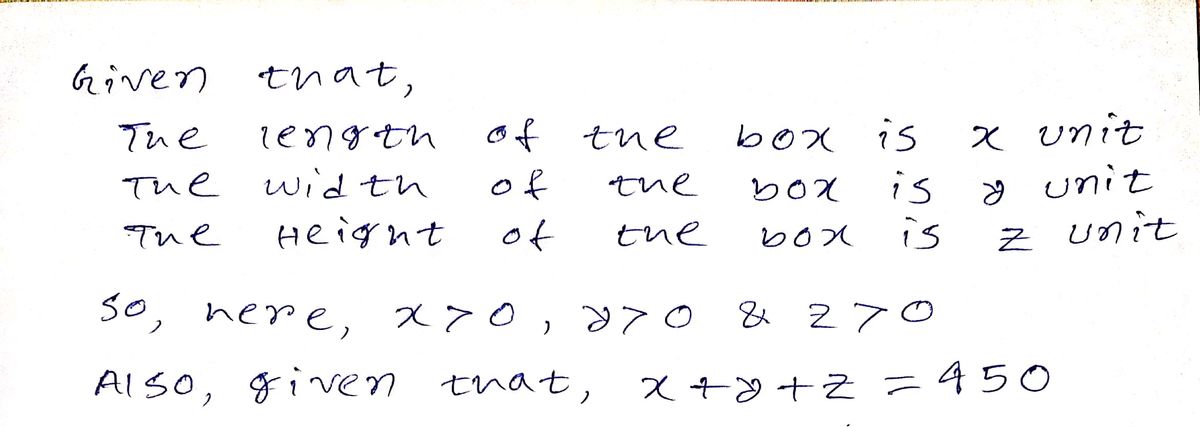 Given that,
The length of the box is x unit
The width of the box is y unit
The Height of the box is z unit
So, here, x > 0, y > 0 & z > 0
Also, given that, x + y + z = 450